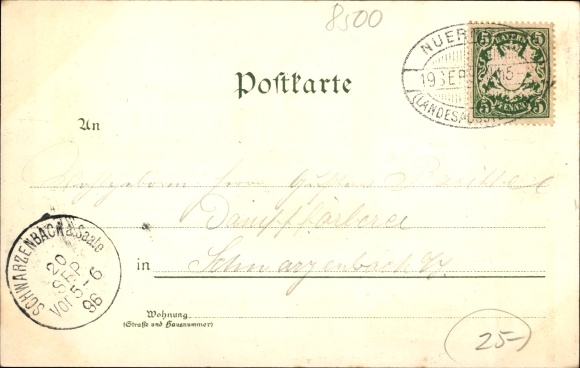 8500
NUER
19 SEP 15
(LANDESAUSST
BAYERN
5 5
5 5
PFENNIG
Postkarte
An
Wohlgeboren Herr
Dampffärberei
in Schwarzenbach
SCHWARZENBACH a. Saale
20
SEP
Vor 5-6
96
Wohnung
(Straße und Hausnummer)
25-